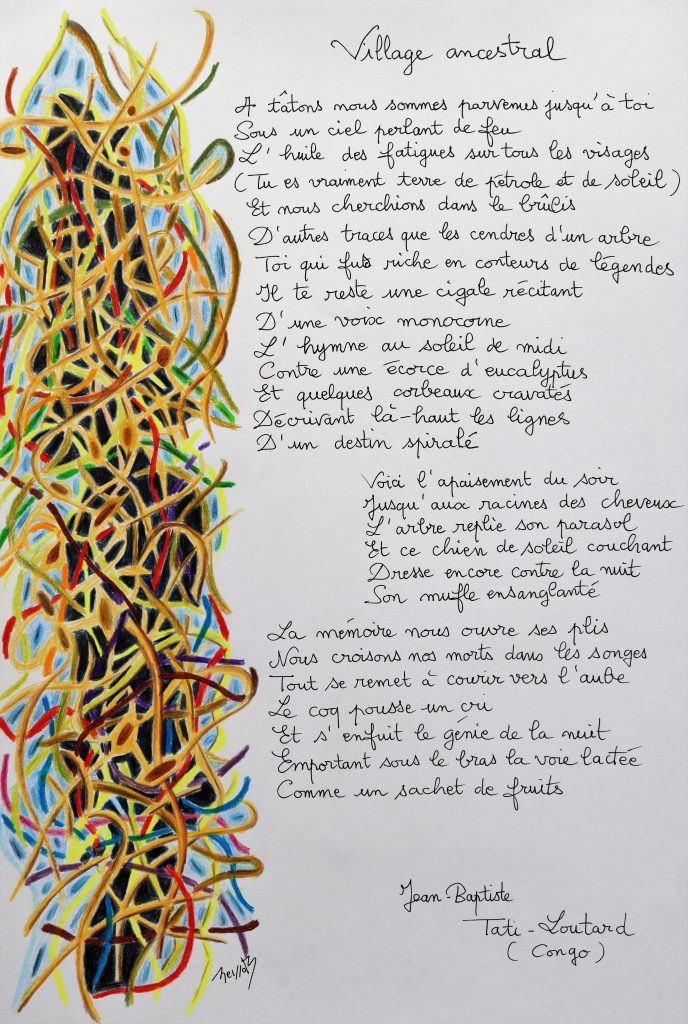 Village ancestral
A tâtons nous sommes parvenus jusqu'à toi
Sous un ciel perlant de feu
L'huile des fatigues sur tous les visages
(Tu es vraiment terre de pétrole et de soleil)
Et nous cherchions dans le brûlis
D'autres traces que les cendres d'un arbre
Toi qui fus riche en conteurs de légendes
Il te reste une cigale récitant
D'une voix monocorne
L'hymne au soleil de midi
Contre une écorce d'eucalyptus
Et quelques corbeaux cravatés
Décrivant là-haut les lignes
D'un destin spiralé
Voici l'apaisement du soir
Jusqu'aux racines des cheveux
L'arbre replie son parasol
Et ce chien de soleil couchant
Dresse encore contre la nuit
Son mufle ensanglanté
La mémoire nous ouvre ses plis
Nous croisons nos morts dans les songes
Tout se remet à courir vers l'aube
Le coq pousse un cri
Et s'enfuit le génie de la nuit
Emportant sous le bras la voie lactée
Comme un sachet de fruits
Jean-Baptiste
Tati-Loutard
(Congo)